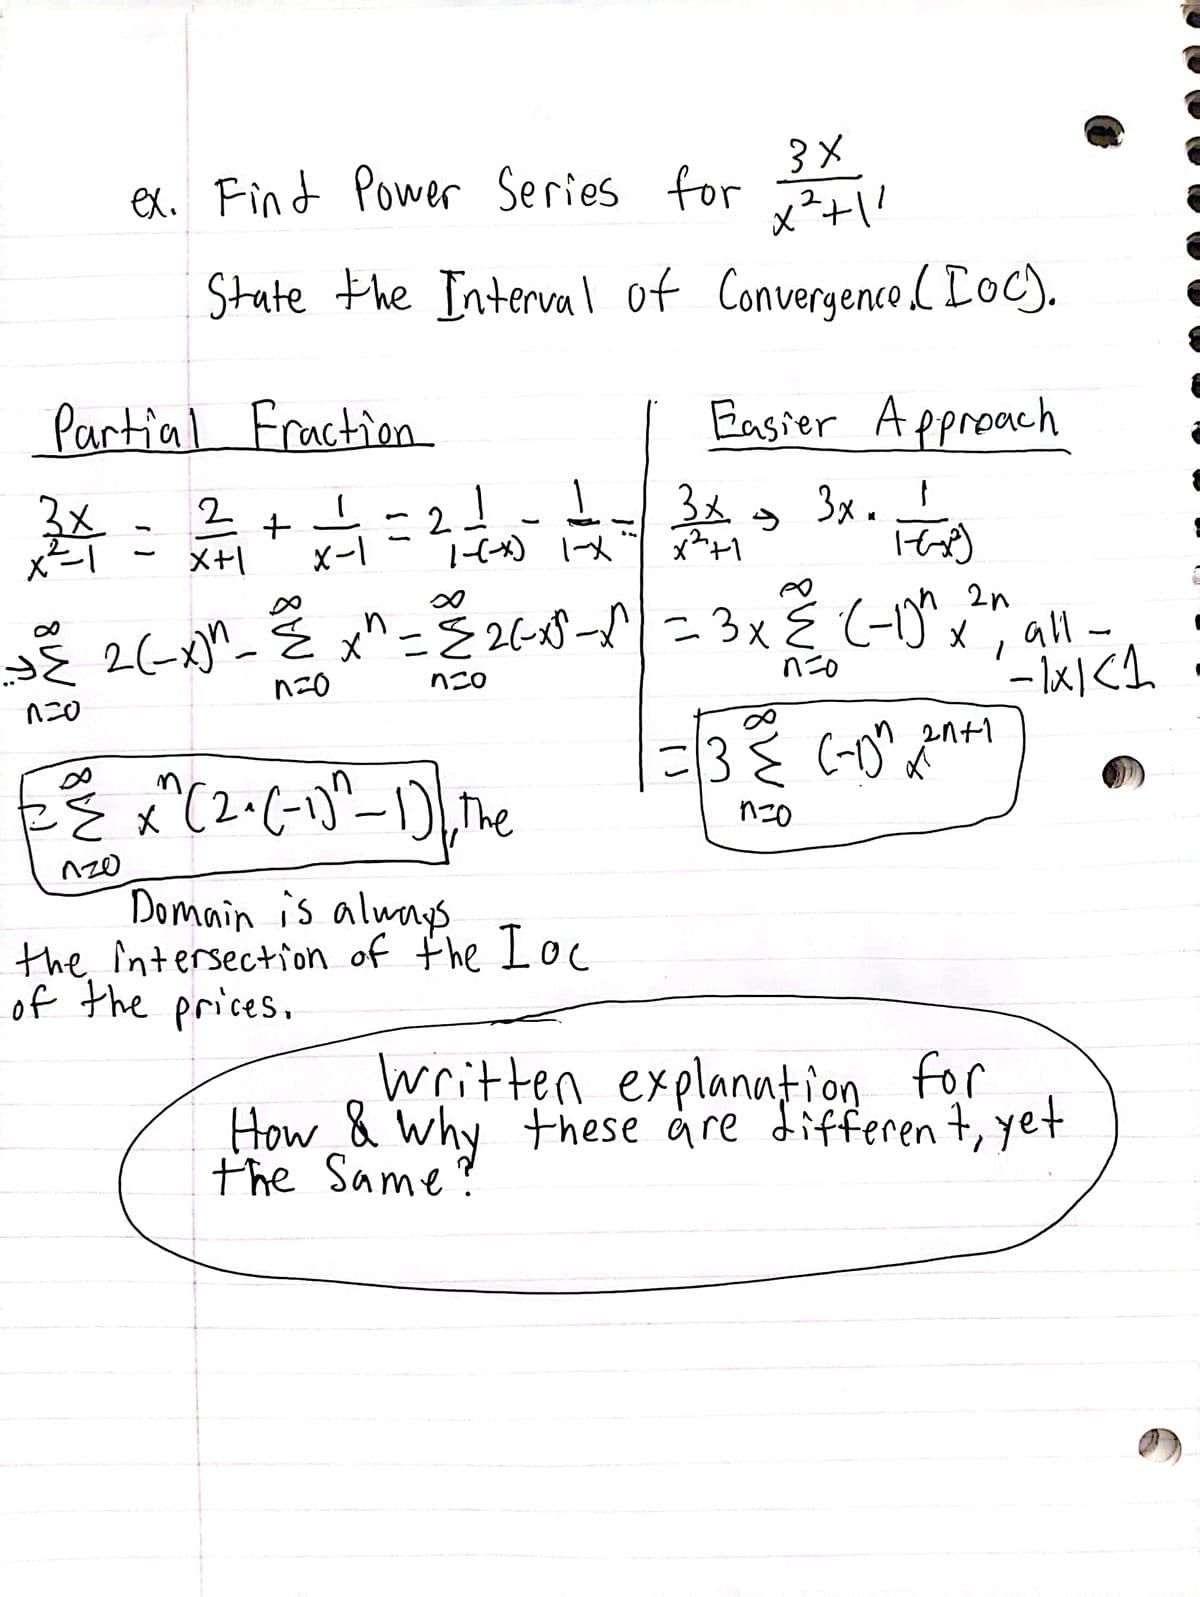 ex. Find Power Series for 3x/(x²+1),
State the Interval of Convergence.(IOC).
Partial Fraction
3x/(x²-1) = 2/(x+1) + 1/(x-1) = 2 1/(1-(-x)) - 1/(1-x) =
→ ∞Σn=0 2(-x)ⁿ - ∞Σn=0 xⁿ = ∞Σn=0 2(-x)ⁿ - xⁿ
= ∞Σn=0 xⁿ(2·(-1)ⁿ-1), The
Domain is always
the intersection of the IOC
of the prices.
Easier Approach
3x/(x²+1) → 3x · 1/(1-(-x²))
= 3x ∞Σn=0 (-1)ⁿ x²ⁿ, all -
-|x|<1
= 3 ∞Σn=0 (-1)ⁿ x²ⁿ⁺¹
Written explanation for
How & Why these are different, yet
the Same?